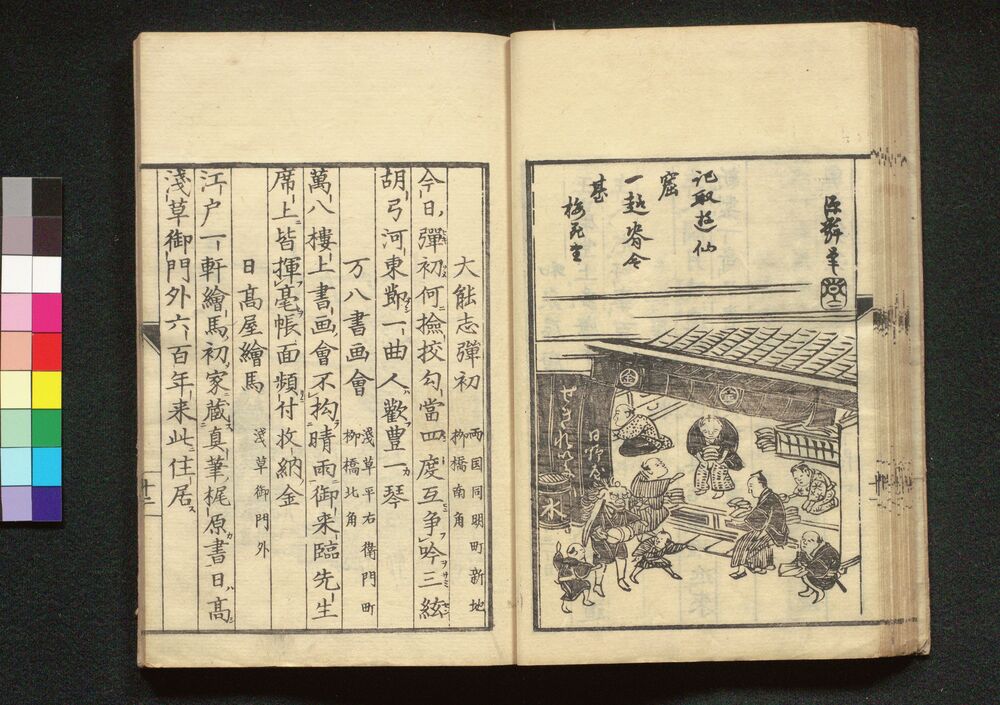 記取遊仙
窟
一趁春令
甚
梅花堂
金
金
せきれい
日野屋
水
大能志彈初
両国同明町新地
柳橋南角
今日彈初何撿挍勾當四度互争吟三絃
胡弓河東節一曲人歡豊一琴
万八書画會
淺草平右衛門町
柳橋北角
萬八樓上書画會不抅晴雨御来臨先生
席上皆揮毫帳面頻付收納金
日髙屋繪馬
淺草御門外
江户一軒繪馬初家蔵真筆梶原書日髙
淺草御門外六百年来此住居
十二